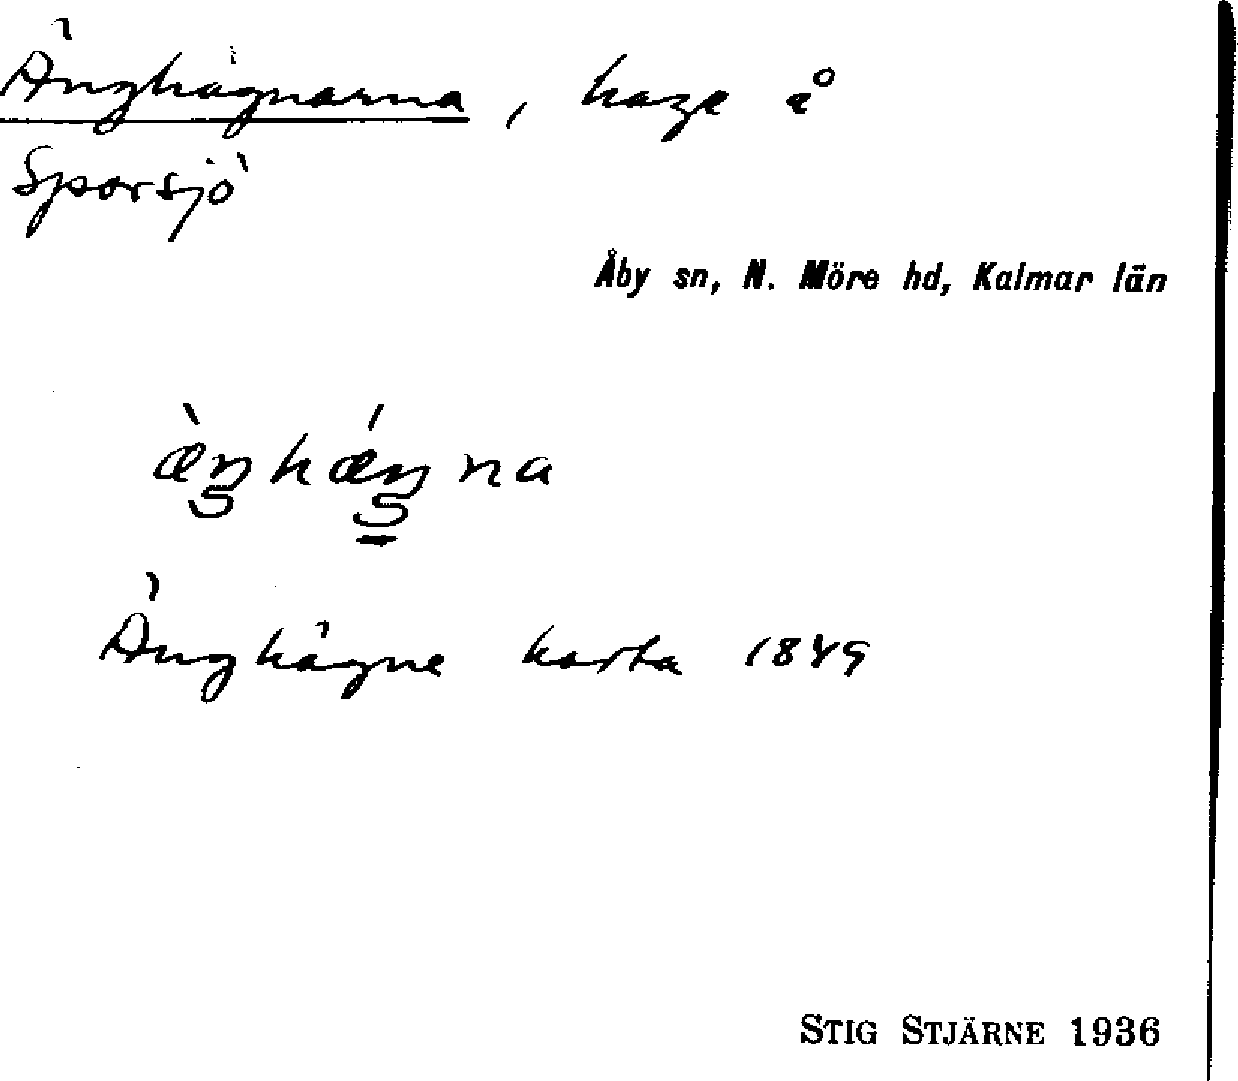 Änghägnarna, hage å
Sporsjö
Åby sn, N. Möre hd, Kalmar län
æ̀ŋhǽŋna
Änghägne karta 1849
STIG STJÄRNE 1936